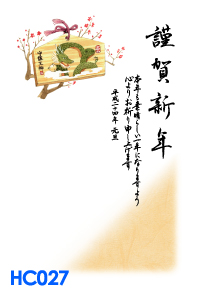 謹賀新年
本年も素晴らしい一年になりますよう
心よりお祈り申し上げます
平成二十四年 元旦
HC027